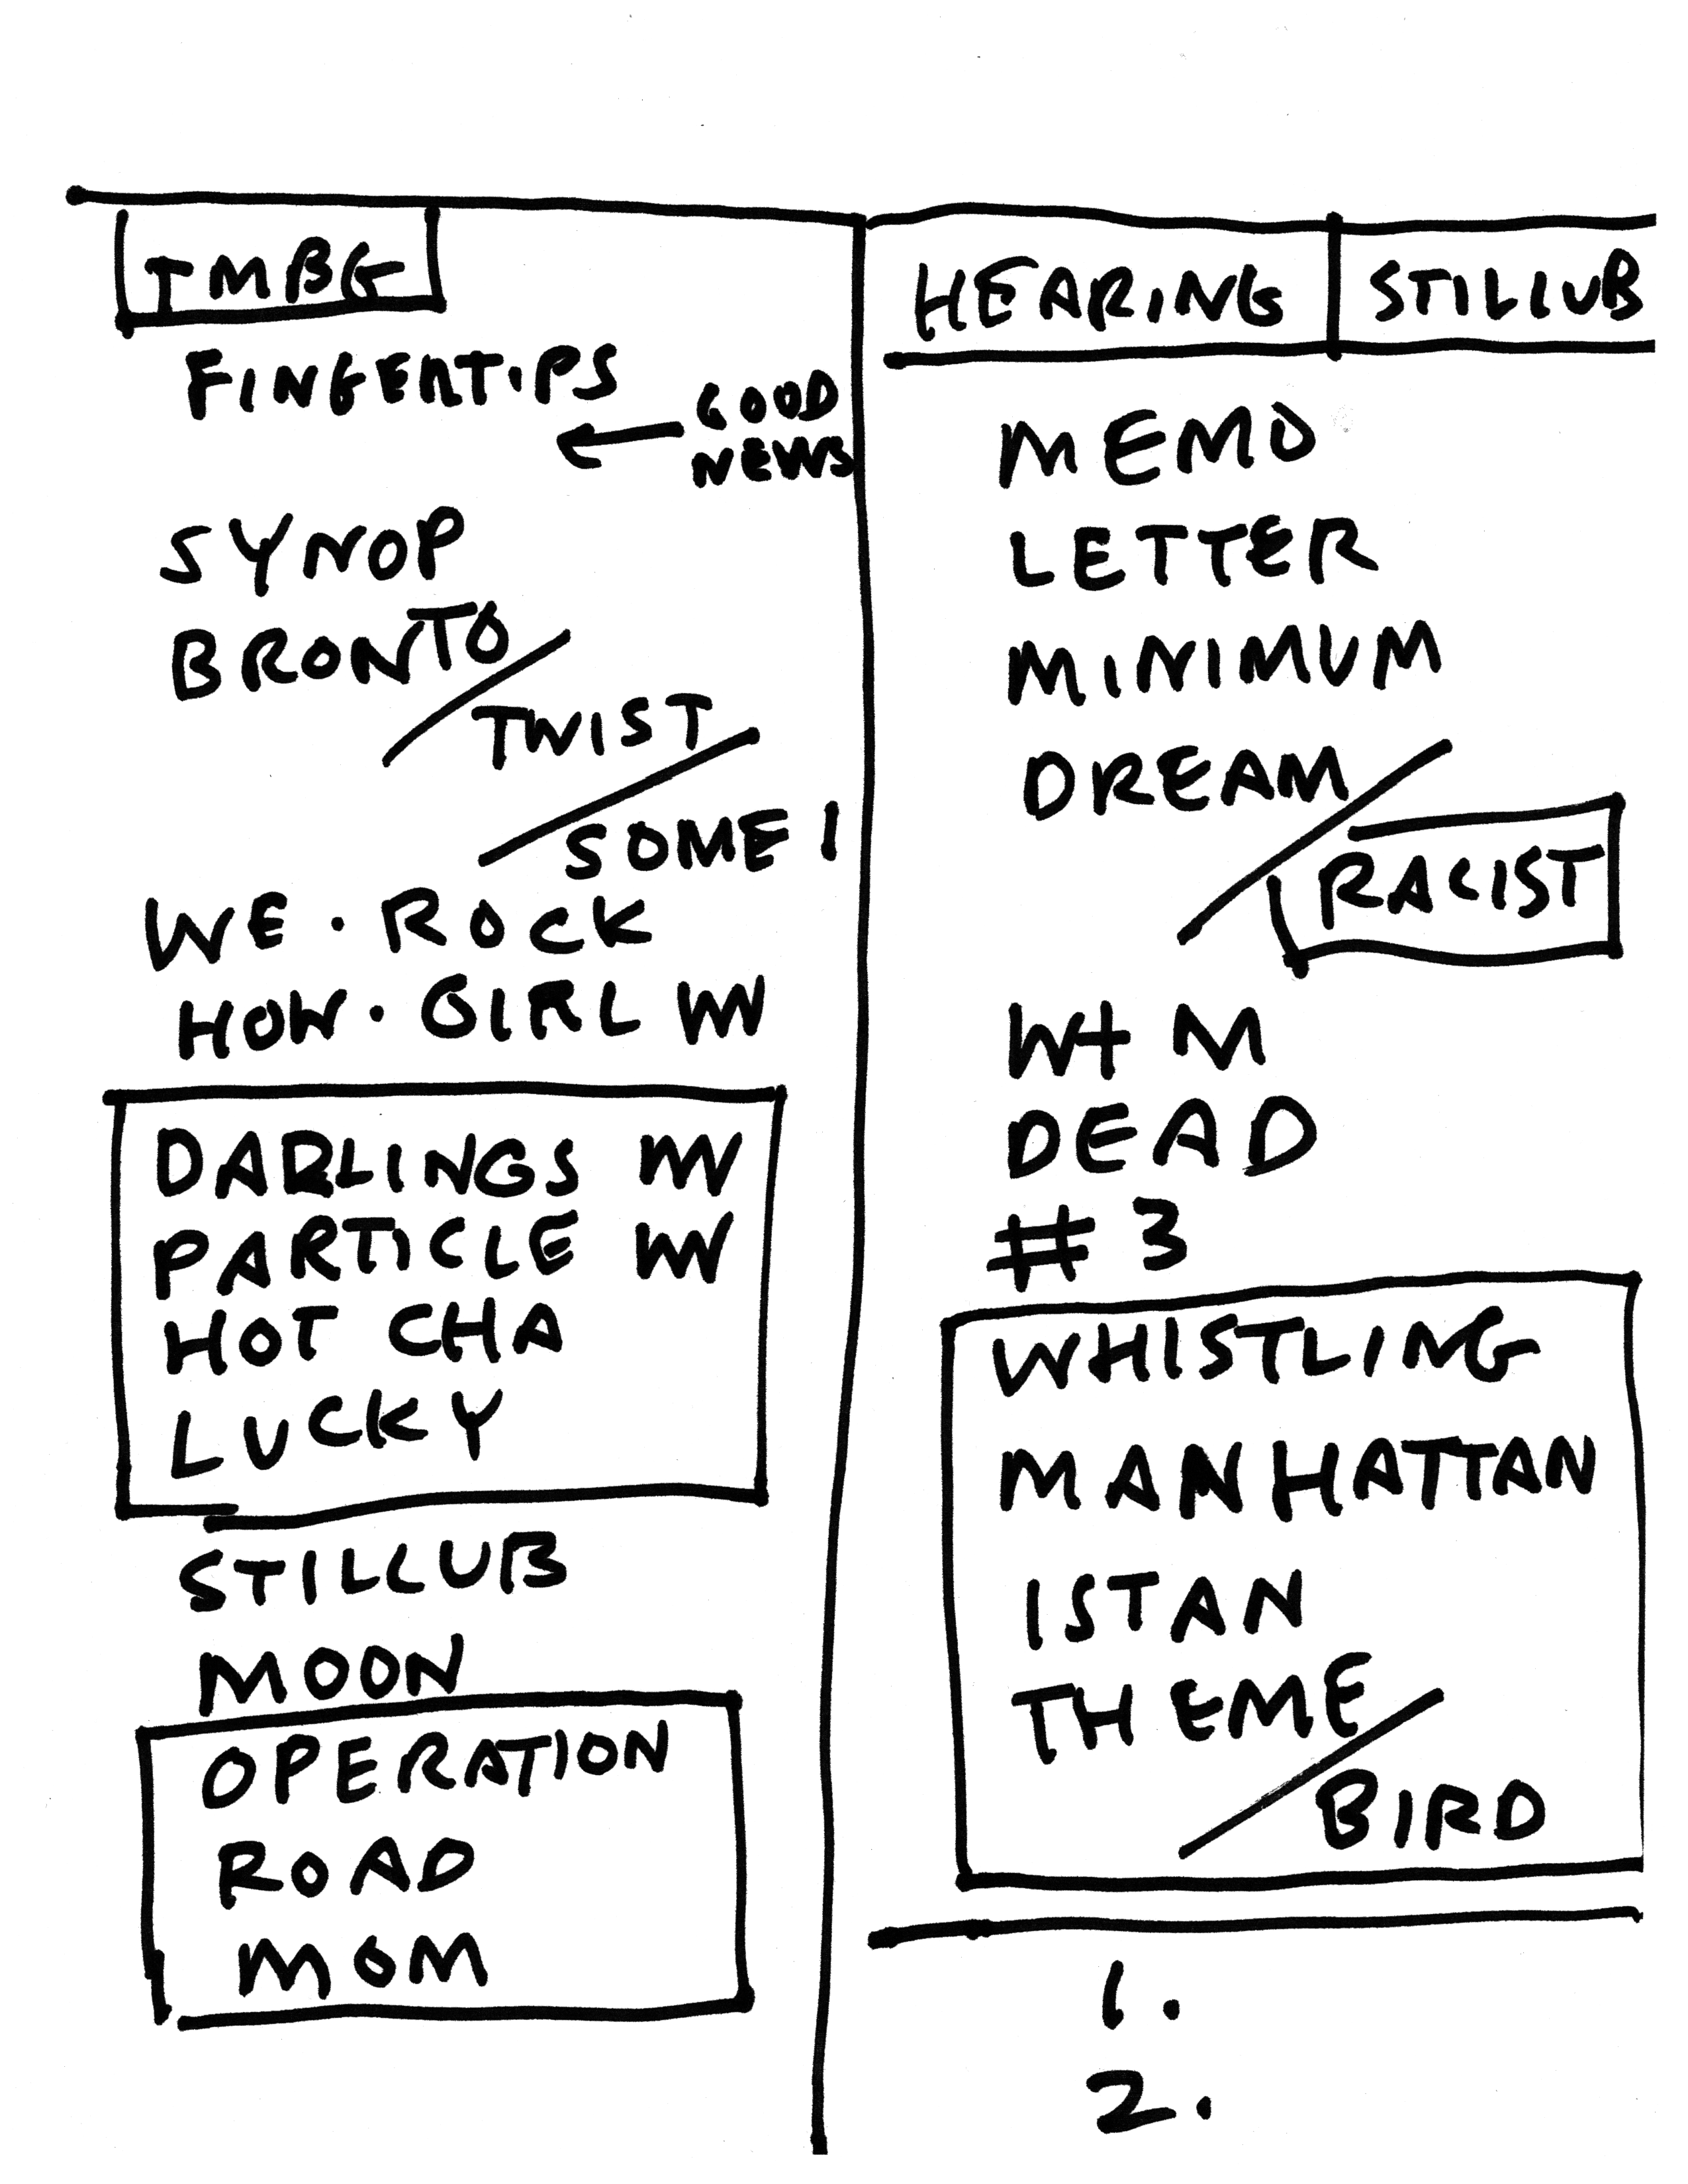 TMBG
FINGERTIPS
← GOOD
NEWS
SYNOP
BRONTO
/ TWIST
/ SOME 1
WE · ROCK
HOW · GIRL W
DARLINGS W
PARTICLE W
HOT CHA
LUCKY
STILLUB
MOON
OPERATION
ROAD
MOM
HEARING | STILLUB
MEMO
LETTER
MINIMUM
DREAM
/ RACIST
W+M
DEAD
# 3
WHISTLING
MANHATTAN
ISTAN
THEME
/ BIRD
1.
2.